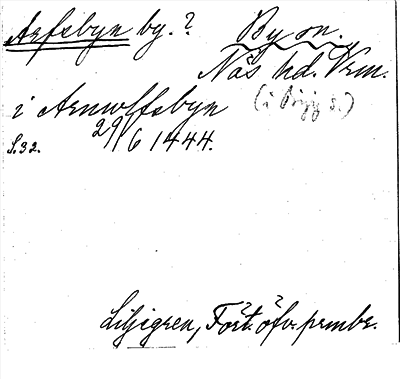 Arfsbyn by.? By sn.
Näs hd. Vrm.
i Arnwlffsbyn (i s.)
S.32. 29/6 1444.
Liljegren, Fört. öfv. prmbr.